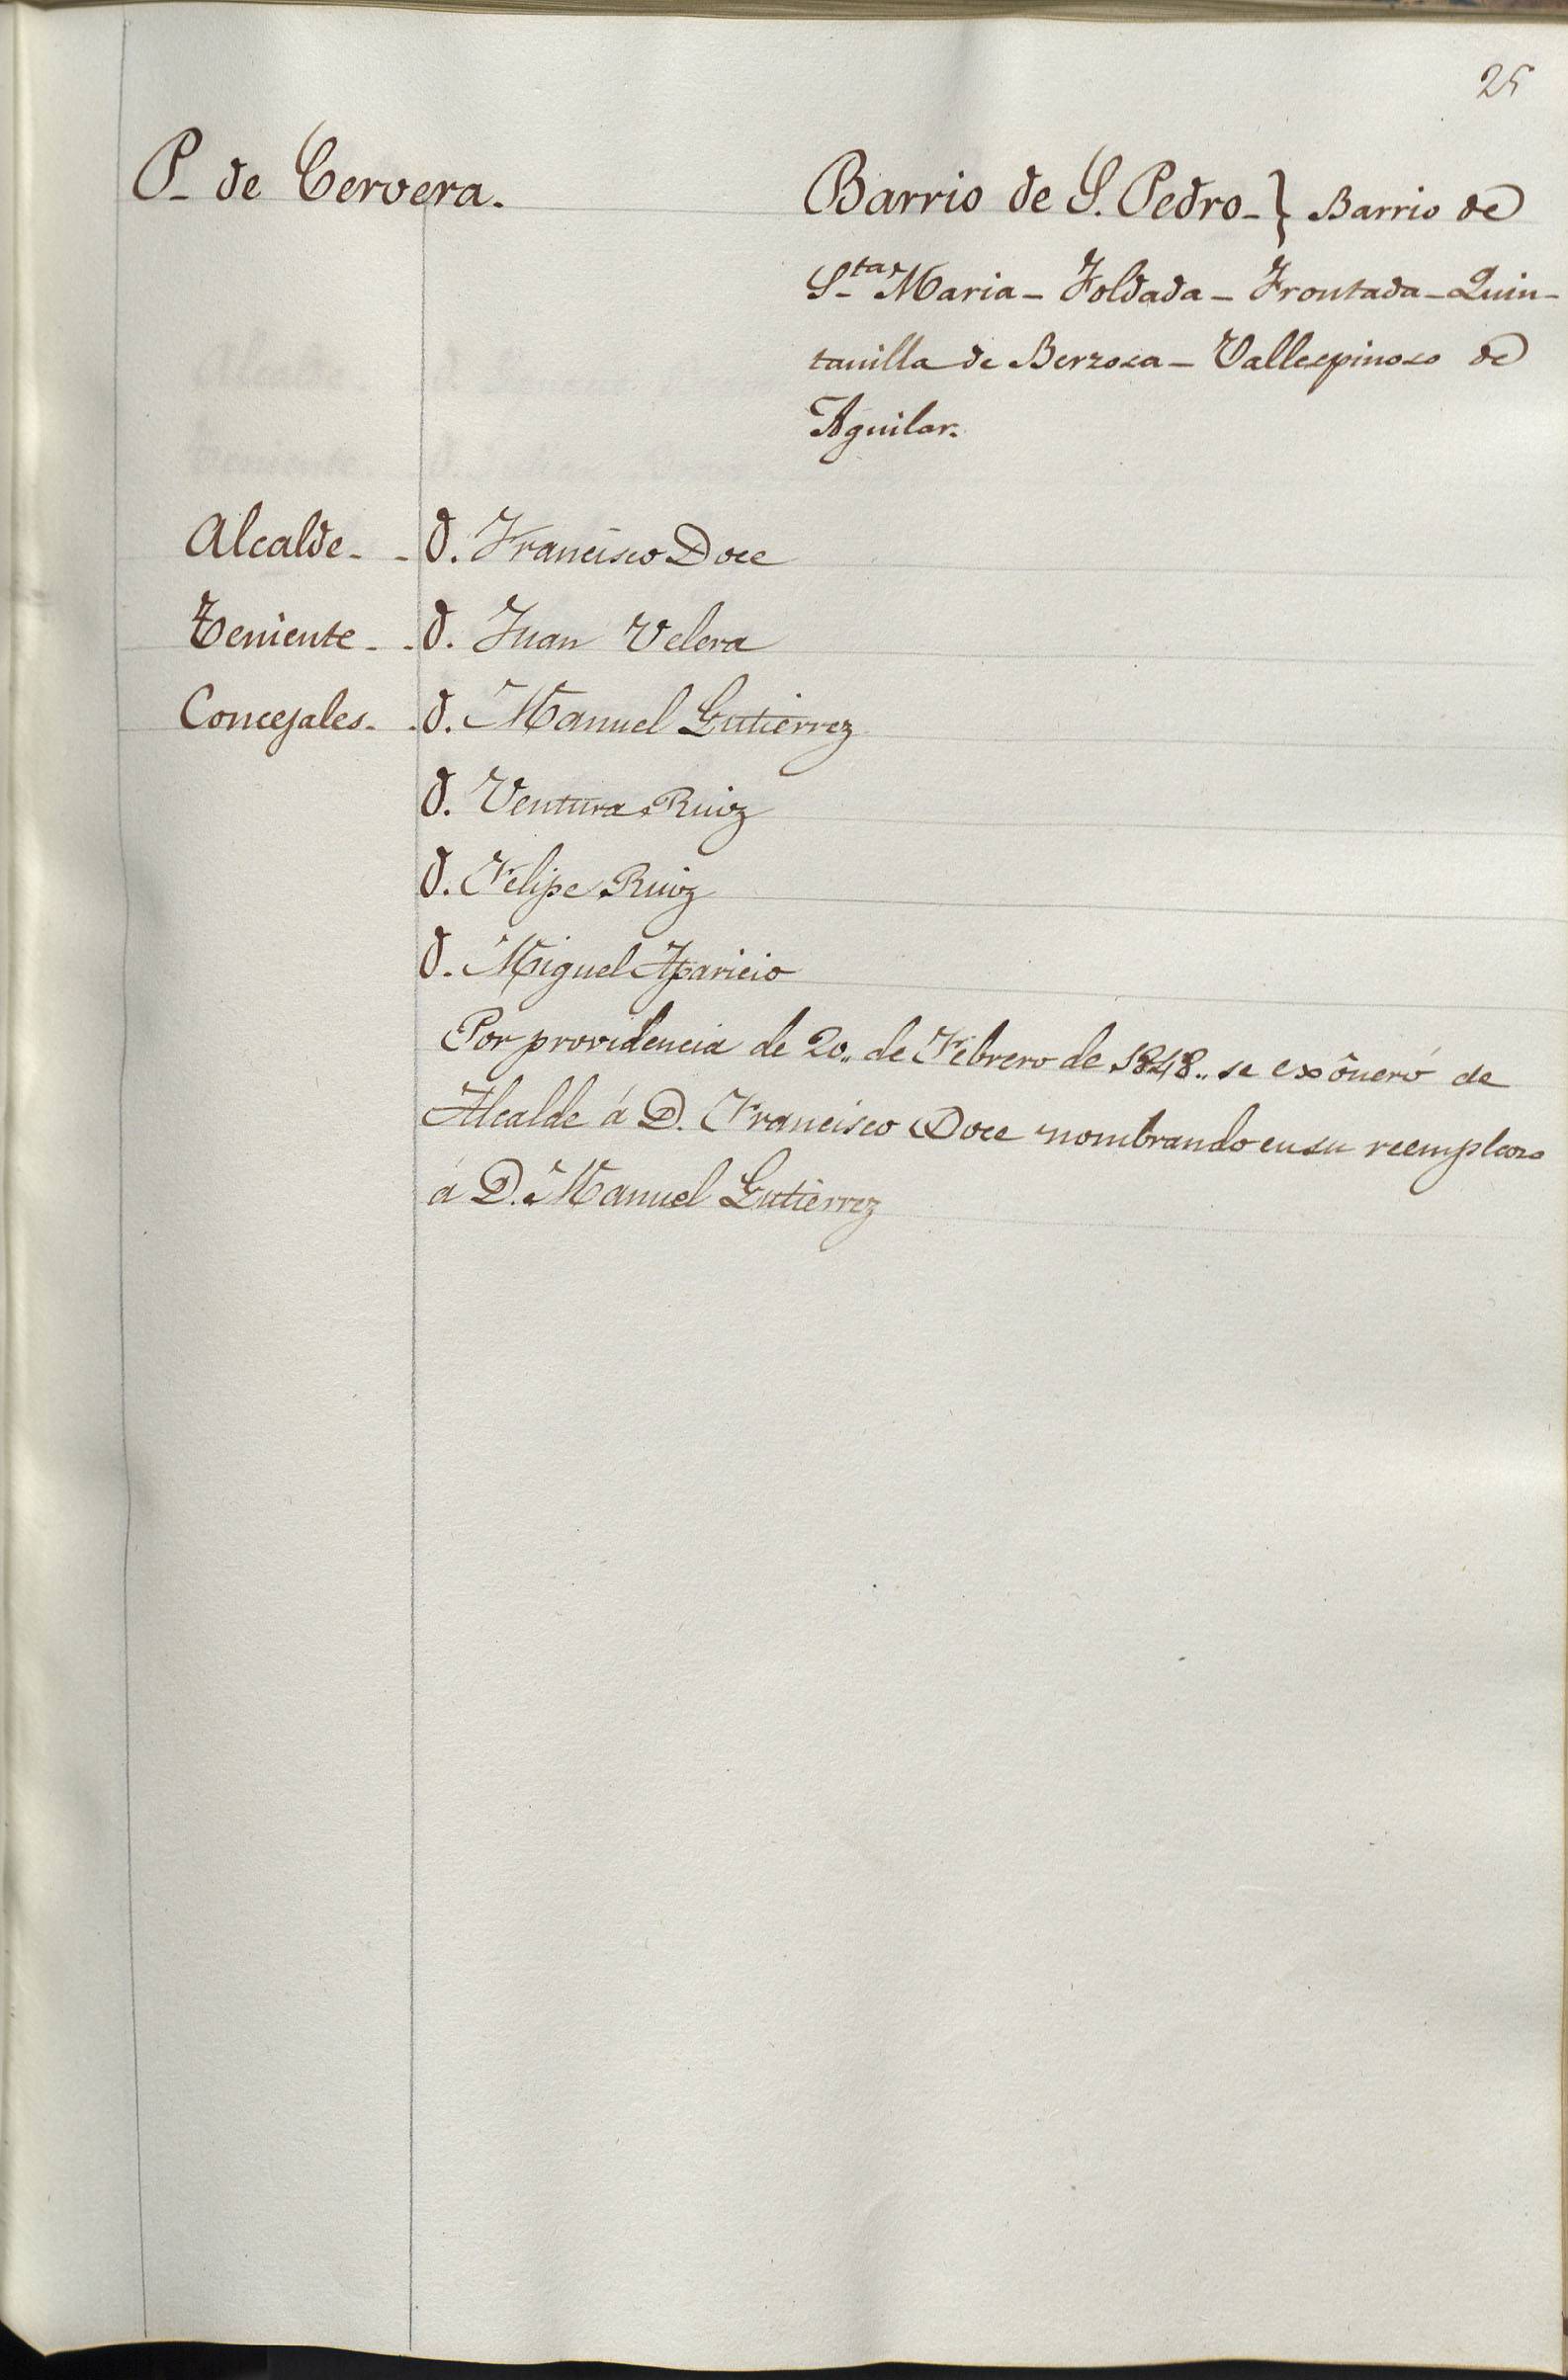 25
P. de Cervera.
Barrio de S. Pedro-} Barrio de
Sta Maria - Foldada - Frontada - Quin-
tanilla de Berzosa - Vallespinoso de
Aguilar.
Alcalde - - D. Francisco Doce
Teniente - - D. Juan Velera
Concejales - - D. Manuel Gutierrez
D. Ventura Ruiz
D. Felipe Ruiz
D. Miguel Aparicio
Por providencia de 20,, de Febrero de 1848,, se exôneró de
Alcalde á D. Francisco Doce nombrando en su reemplazo
á D. Manuel Gutierrez